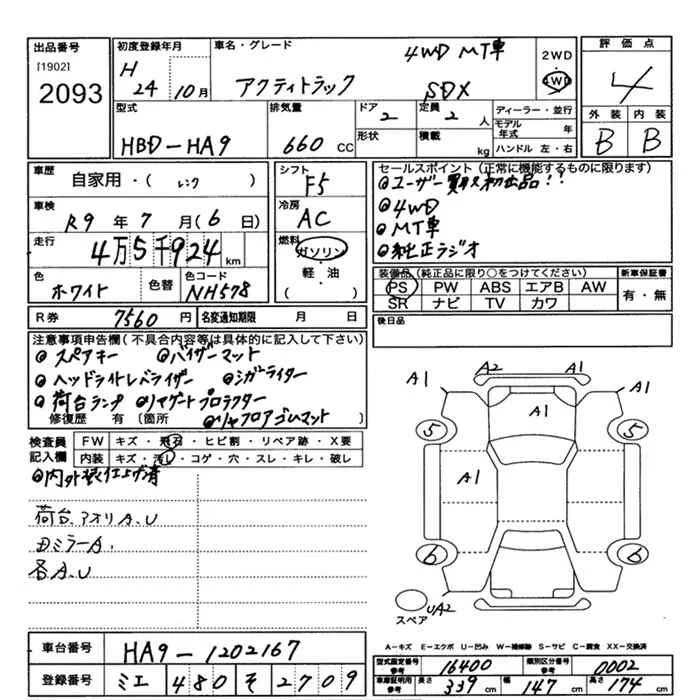 出品番号 初度登録年月 車名・グレード 4WD MT車 2WD 評価点
[1902] H アクティトラック SDX 4WD 4
2093 24 10月
外装 内装
型式 排気量 ドア 2 定員 2人 ディーラー・並行 B B
HBD-HA9 660 CC 形状 積載 kg モデル年式 年
ハンドル 左・右
車歴 自家用・( レンク ) シフト F5 セールスポイント(正常に機能するものに限ります)
◎ユーザー買取初出品!!
車検 R9年7月(6日) 冷房 AC ◎4WD
◎MT車
走行 4万5千924km 燃料 ガソリン ◎純正ラジオ
軽・油
( )
色 ホワイト 色替 色コード NH578 装備品(純正品に限り○をつけてください) 新車保証書
PS PW ABS エアB AW 有・無
SR ナビ TV カワ
R券 7560円 名変通知期限 月 日 後日品
注意事項申告欄(不具合内容等は具体的に記入して下さい)
◎スペアキー ◎バイザーマット
◎ヘッドライトレバライザー ◎シガーライター
◎荷台ランプ ◎リヤゲートプロテクター
修復歴 有 [箇所 ◎リヤフロアゴムマット
検査員 FW キズ・飛石・ヒビ割・リペア跡・X要
記入欄 内装 キズ・汚れ・コゲ・穴・スレ・キレ・破レ
◎内外装仕上げ済
荷台、アオリA、U
ミラーA.
各A、U
A1 A2 A1 A1
A1
5 5
A1
6 6
スペア UA2
A−キズ E−エクボ U−凹み W−補修跡 S−サビ C−腐食 XX−交換済
車台番号 HA9-1202167 型式指定番号 参考 16400 類別区分番号 参考 0002
登録番号 ミエ 480 そ 2709 車庫証明用 参考 長さ 339cm 幅 147cm 高さ 174cm